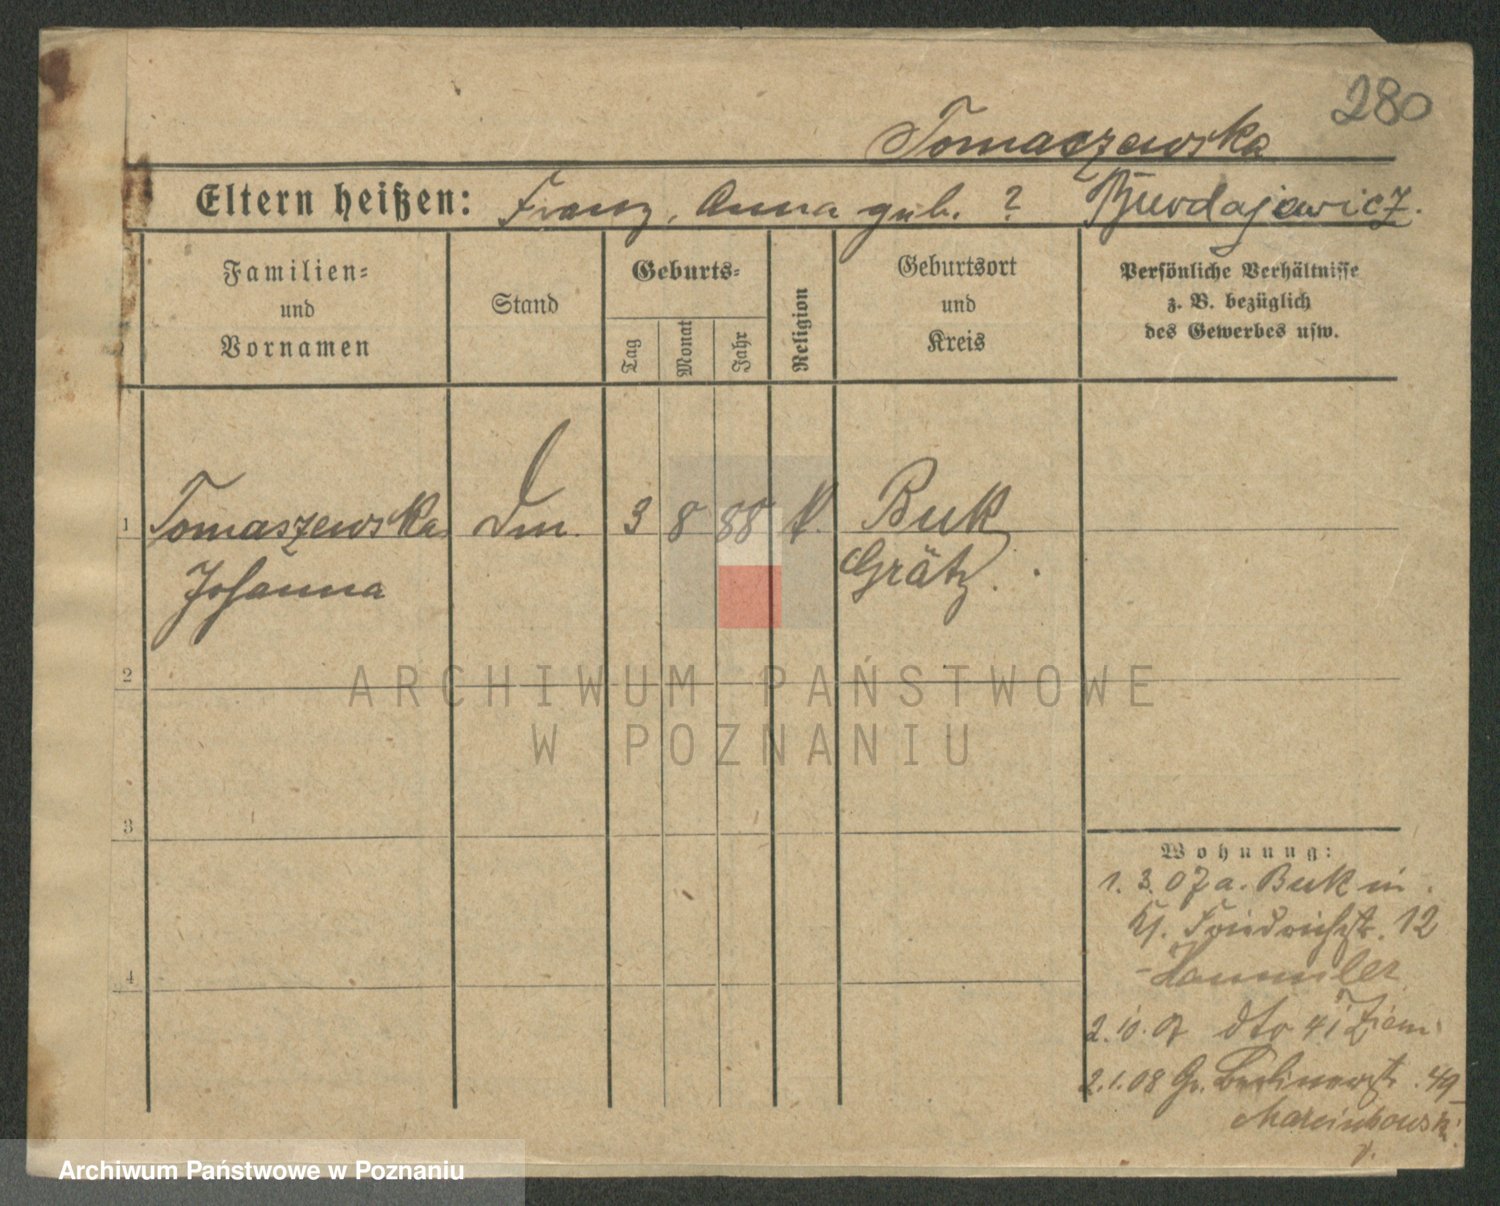 280
Tomaszewska
Eltern heißen: Franz, Anna geb. ? Burdajewicz.
Familien-
und
Vornamen
Stand
Geburts-
Tag
Monat
Jahr
Religion
Geburtsort
und
Kreis
Persönliche Verhältnisse
z. B. bezüglich
des Gewerbes usw.
1
Tomaszewska
Johanna
3
8
88
k.
Buk
Grätz.
2
3
4
Wohnung:
1. 3. 07 a. Buk in
Friedrichstr. 12
2. 10. 07 dto 41
2. 1. 08 Gr. Berlinerstr. 49
Marcinkowski
ARCHIWUM PAŃSTWOWE
W POZNANIU
Archiwum Państwowe w Poznaniu